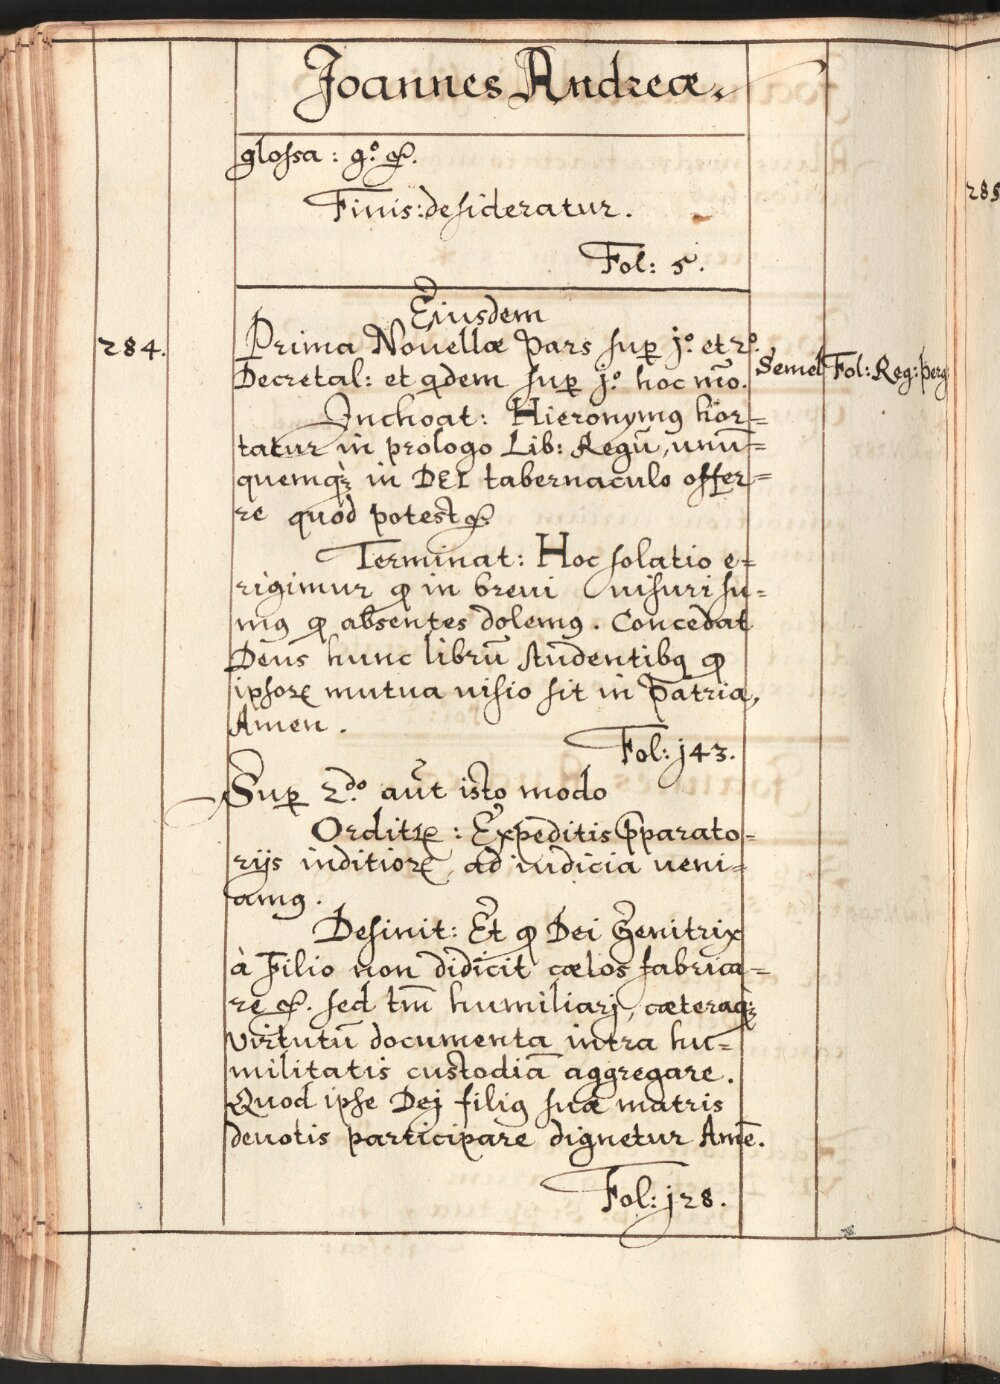 Joannes Andreæ.
glossa: g.º &.
Finis: desideratur.
Fol: 5.
285
Eiusdem
284. Prima Nouellæ Pars sup j.º et 2.º Semel Fol: Reg: perg
Decretal: et qdem sup j.º hoc mo.
Inchoat: Hieronymꝰ hor=
tatur in prologo Lib: Regū, unū=
quemqꝫ in DEI tabernaculo offer=
re quod potest &.
Terminat: Hoc solatio e=
rigimur ꝙ in breui uisuri su=
mꝰ ꝙ absentes dolemꝰ. Concedat
Deus hunc librū studentibꝰ ꝙ
ipsoꝝ mutua uisio sit in Patria,
Amen.
Fol: j43.
Sup 2.do aūt isto modo
Orditꝛ: Expeditis pparato=
rijs inditioꝝ, ad iudicia ueni=
amꝰ.
Desinit: Et ꝙ Dei Genitrix
à Filio non didicit cœlos fabrica=
re &. sed tm̄ humiliarj, cæteraqꝫ
virtutū documenta intra hu=
militatis custodiā aggregare.
Quod ipse Dej filiꝰ suæ matris
deuotis participare dignetur Amē.
Fol: j28.